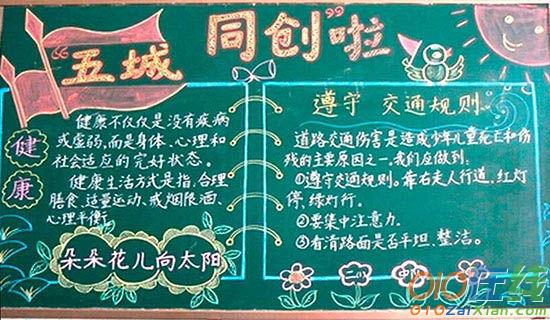 “五城同创”啦
健康
健康不仅仅是没有疾病
或虚弱,而是身体、心理和
社会适应的完好状态。
健康生活方式是指,合理
膳食、适量运动、戒烟限酒、
心理平衡
朵朵花儿向太阳
遵守 交通规则
道路交通伤害是造成少年儿童死亡和伤
残的主要原因之一,我们应做到:
①遵守交通规则。靠右走人行道,红灯
停,绿灯行。
②要集中注意力.
③看清路面是否平坦、整洁。
010在线
010zaixian.com